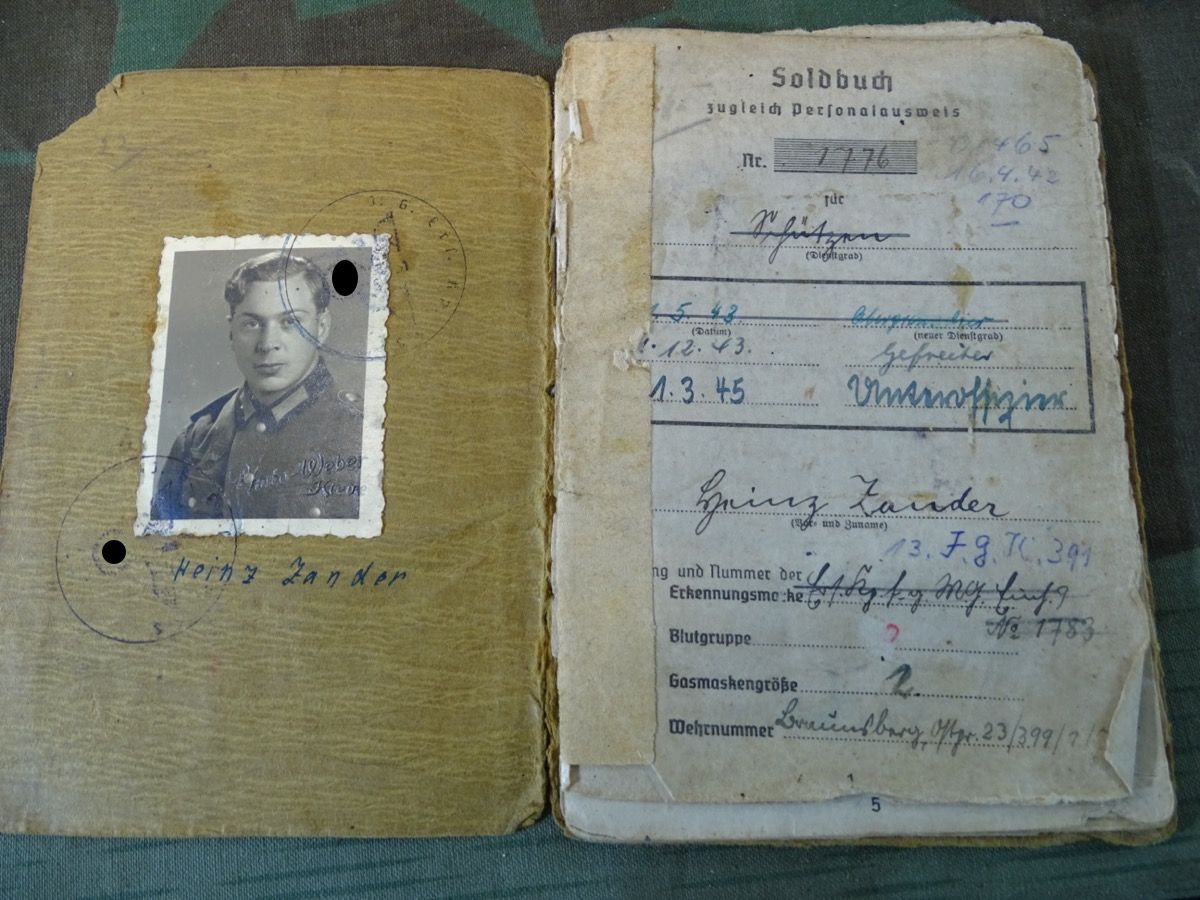 Heinz Zander
Soldbuch
zugleich Personalausweis
Nr. 1776
465
16.4.42
170
für
Schützen
(Dienstgrad)
1.5.43
(Datum) (neuer Dienstgrad)
1.12.43. Gefreiter
1.3.45 Unteroffizier
Heinz Zander
(Vor- und Zuname)
13. J.g.K. 391
ng und Nummer der
Erkennungsmarke
No 1783
Blutgruppe ?
Gasmaskengröße 2.
Wehrnummer Braunsberg, Ostpr. 23/399/
1
5